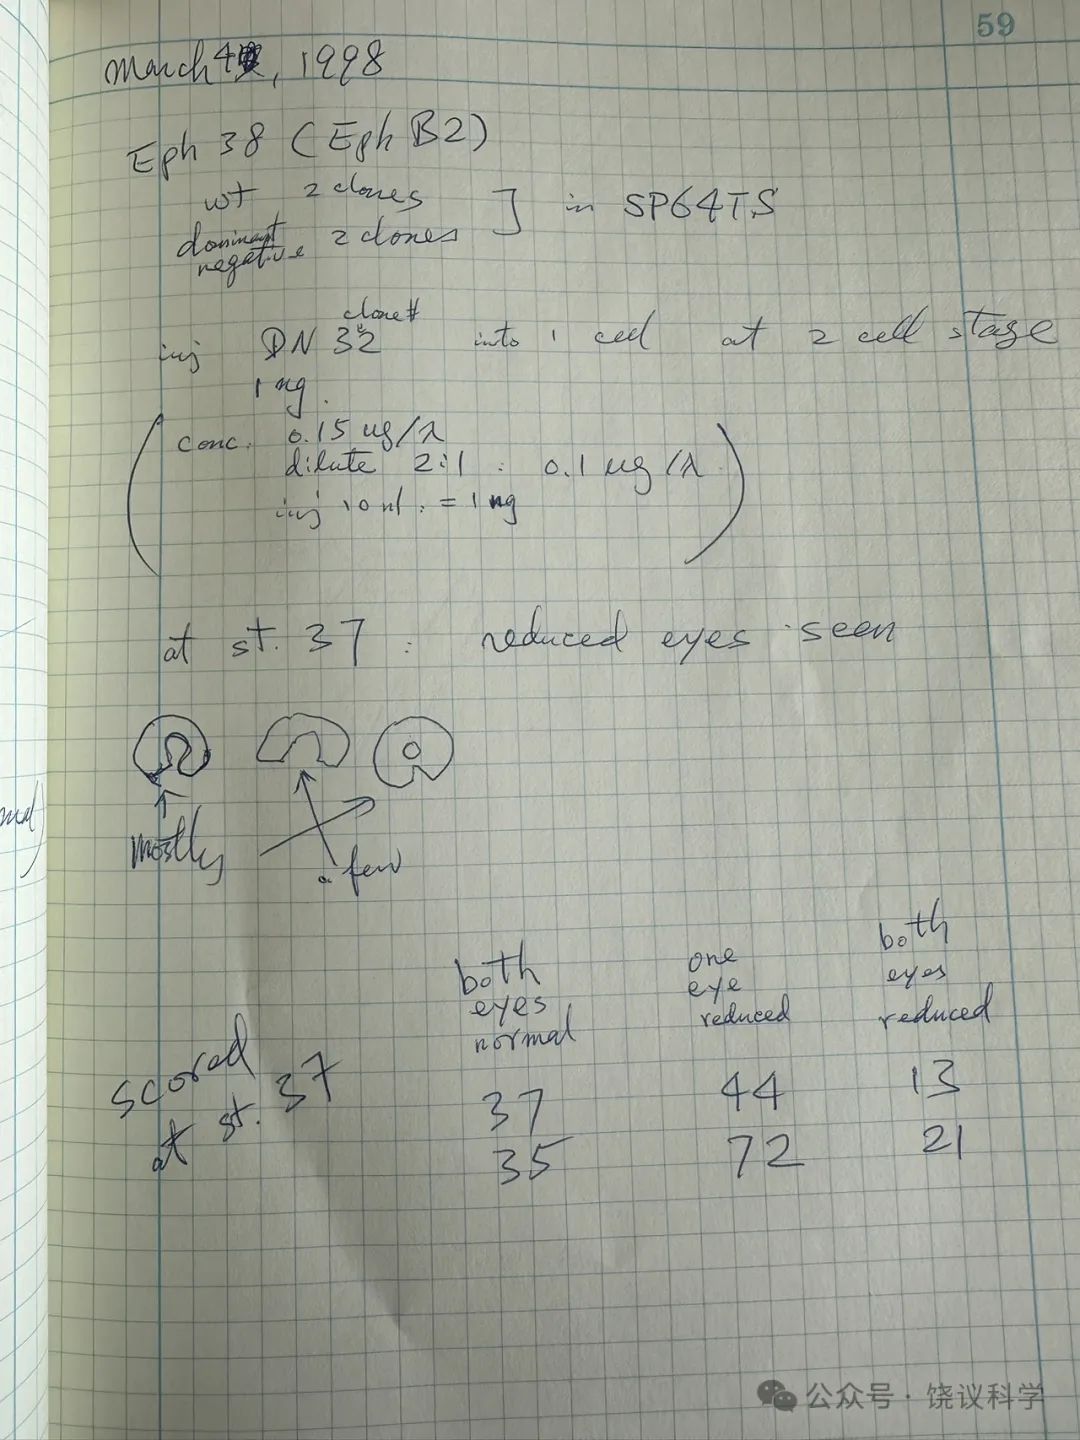 59
March 4, 1998
Eph 38 (Eph B2)
wt 2 clones ] in SP64TS
dominant negative 2 clones
clone#
inj DN 32 into 1 cell at 2 cell stage
1 ng.
(conc. 0.15 ug/λ
dilute 2:1 : 0.1 ug/λ
inj 10 nl. = 1 ng)
at st. 37 : reduced eyes seen
mostly
a few
both eyes normal
one eye reduced
both eyes reduced
scored at st. 37
37 44 13
35 72 21
公众号 · 饶议科学